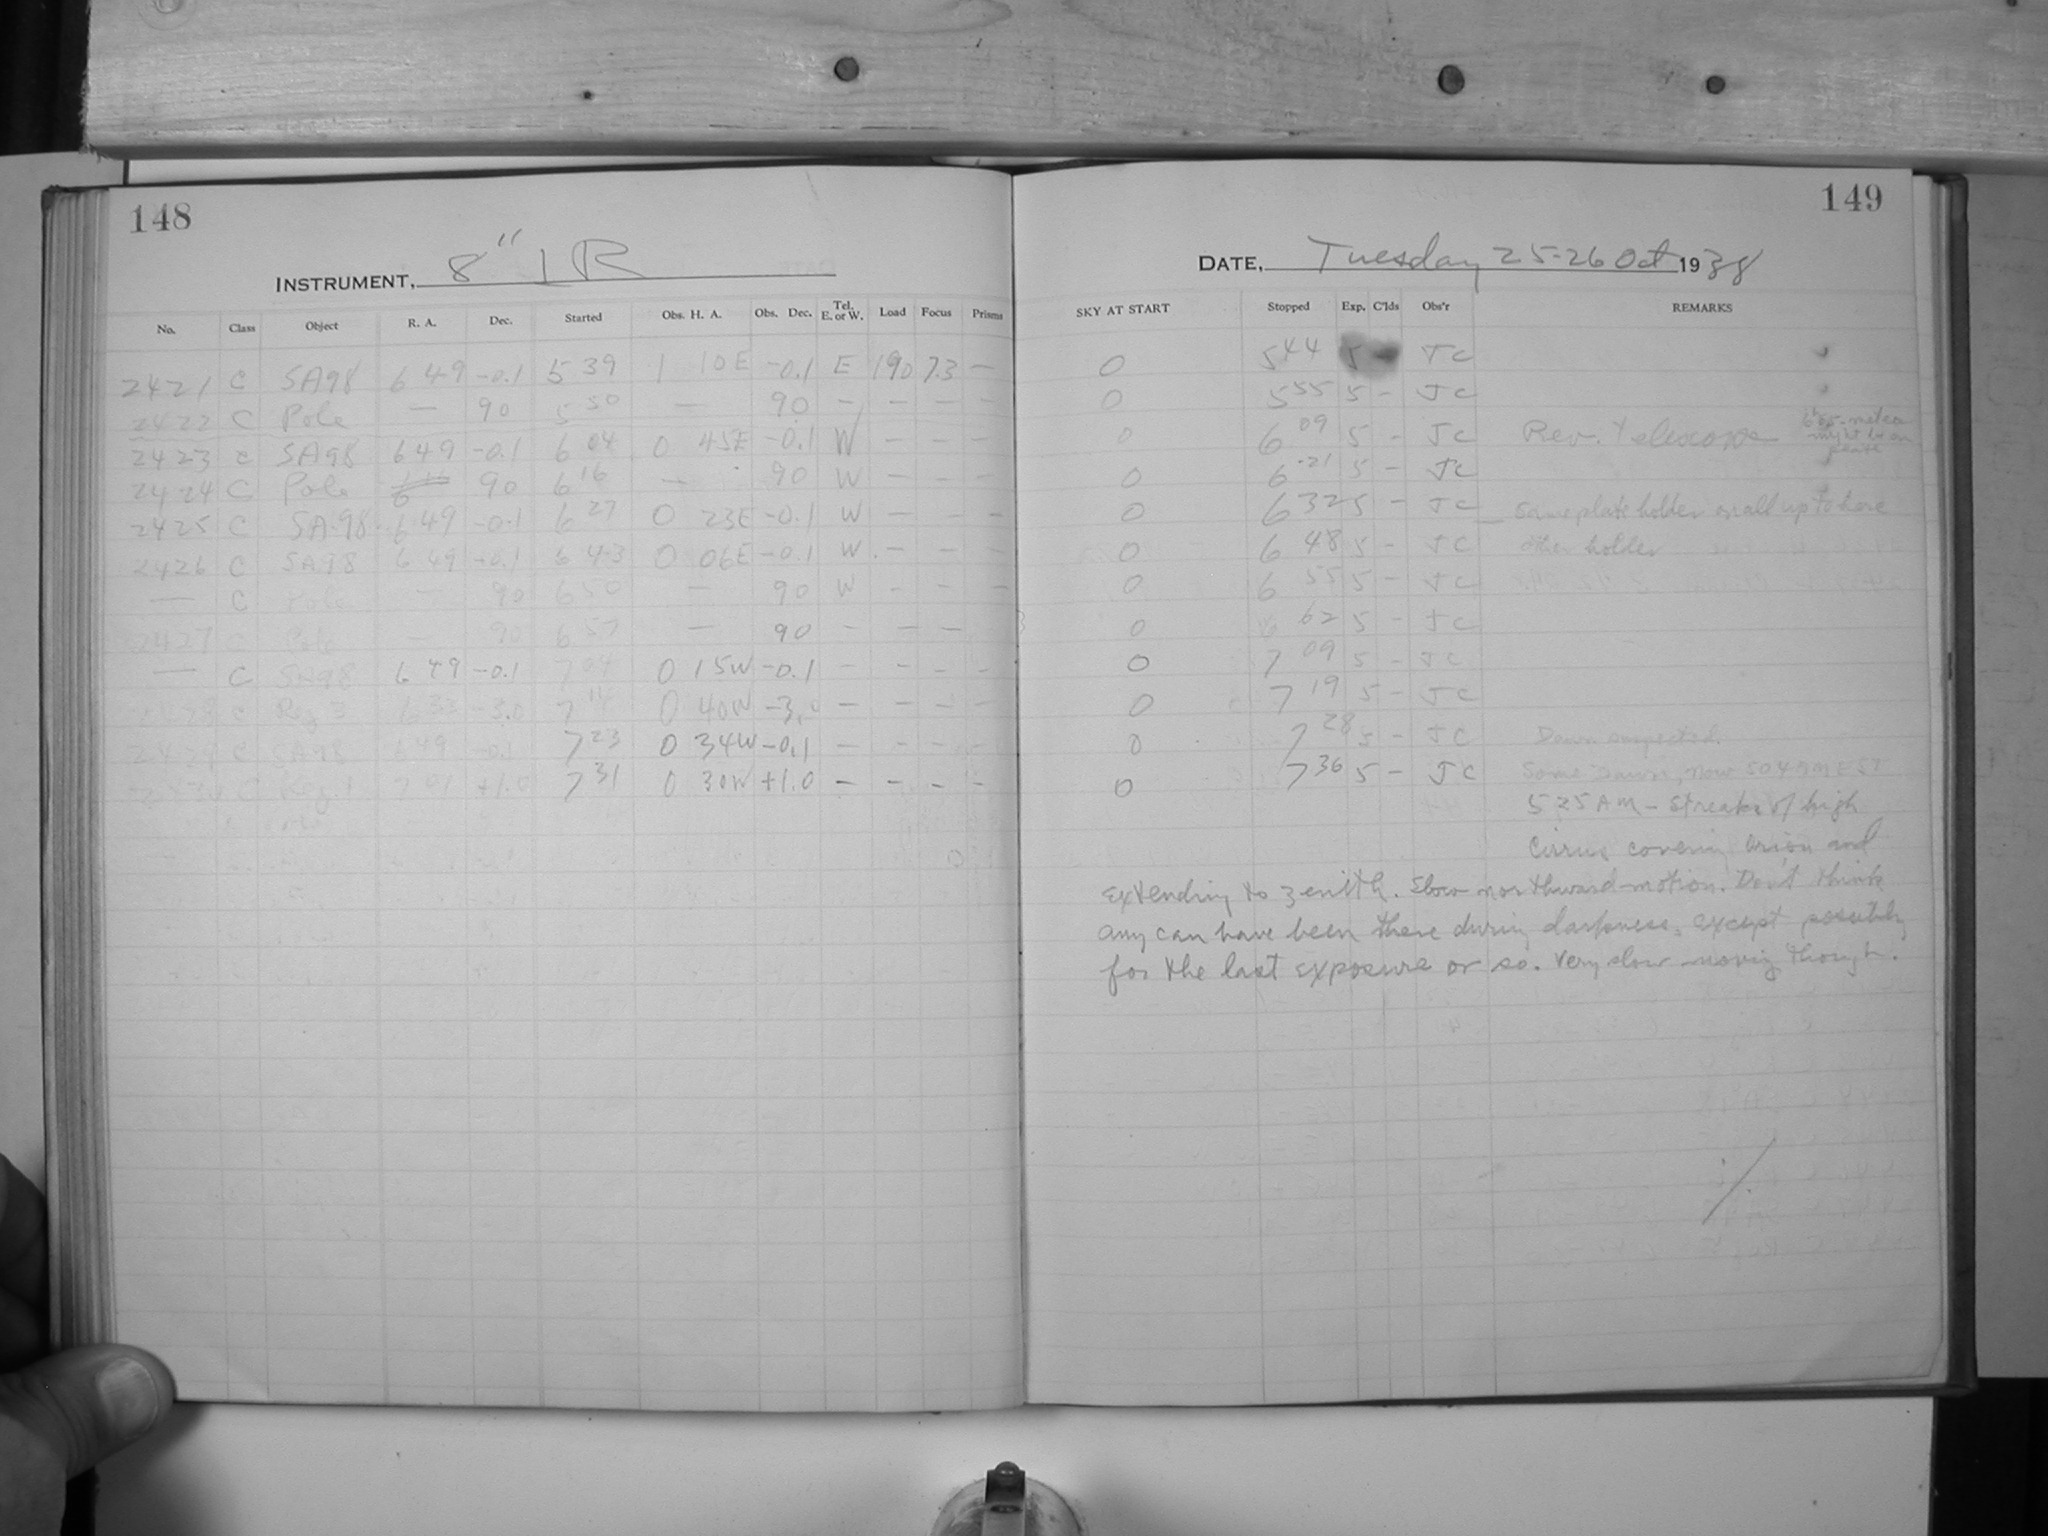 148
INSTRUMENT, 8" IR
No. Class Object R. A. Dec. Started Obs. H. A. Obs. Dec. Tel. E. or W. Load Focus Prisms
2421 C SA98 6 49 -0.1 5 39 1 10E -0.1 E 190 7.3 —
2422 C Pole — 90 5 50 — 90 - - - -
2423 C SA98 6 49 -0.1 6 04 0 45E -0.1 W - - -
2424 C Pole 90 6 16 — 90 W - - -
2425 C SA98 6 49 -0.1 6 27 0 23E -0.1 W - - -
2426 C SA98 6 49 -0.1 6 43 0 06E -0.1 W - - -
— C Pole — 90 6 50 — 90 W - - -
2427 C Pole — 90 6 57 — 90 - - -
— C SA98 6 49 -0.1 7 04 0 15W -0.1 - - - -
2428 C Reg 3 6 33 -3.0 7 14 0 40W -3.0 - - - -
2429 C SA98 6 49 -0.1 7 23 0 34W -0.1 - - - -
2430 C Reg 1 7 01 +1.0 7 31 0 30W +1.0 - - - -
149
DATE, Tuesday 25-26 Oct 1938
SKY AT START Stopped Exp. C'lds Obs'r REMARKS
0 5 44 5 - JC
0 5 55 5 - JC
0 6 09 5 - JC Rev. Telescope 6 05 - meteor might be on plate
0 6 21 5 - JC
0 6 32 5 - JC Same plate holder on all up to here
0 6 48 5 - JC other holder
0 6 55 5 - JC
0 6 62 5 - JC
0 7 09 5 - JC
0 7 19 5 - JC
0 7 28 5 - JC Dawn suspected.
0 7 36 5 - JC Some dawn, now 504 AM EST
5 25 AM - Streaks of high
Cirrus covering Orion and
extending to zenith. Slow northward motion. Don't think
any can have been there during darkness, except possibly
for the last exposure or so. Very slow moving though.